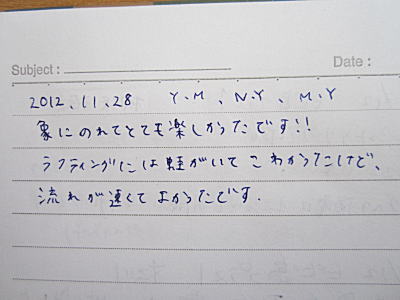 Subject : Date :
2012.11.28 Y.M、N.Y、M.Y
象にのれてとても楽しかったです!!
ラフティングには蛭がいてこわかったけど、
流れが速くてよかったです.